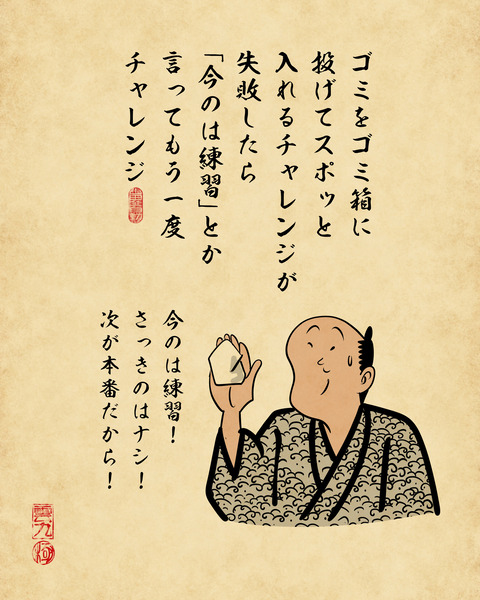 ゴミをゴミ箱に
投げてスポッと
入れるチャレンジが
失敗したら
「今のは練習」とか
言ってもう一度
チャレンジ
今のは練習！
さっきのはナシ！
次が本番だから！